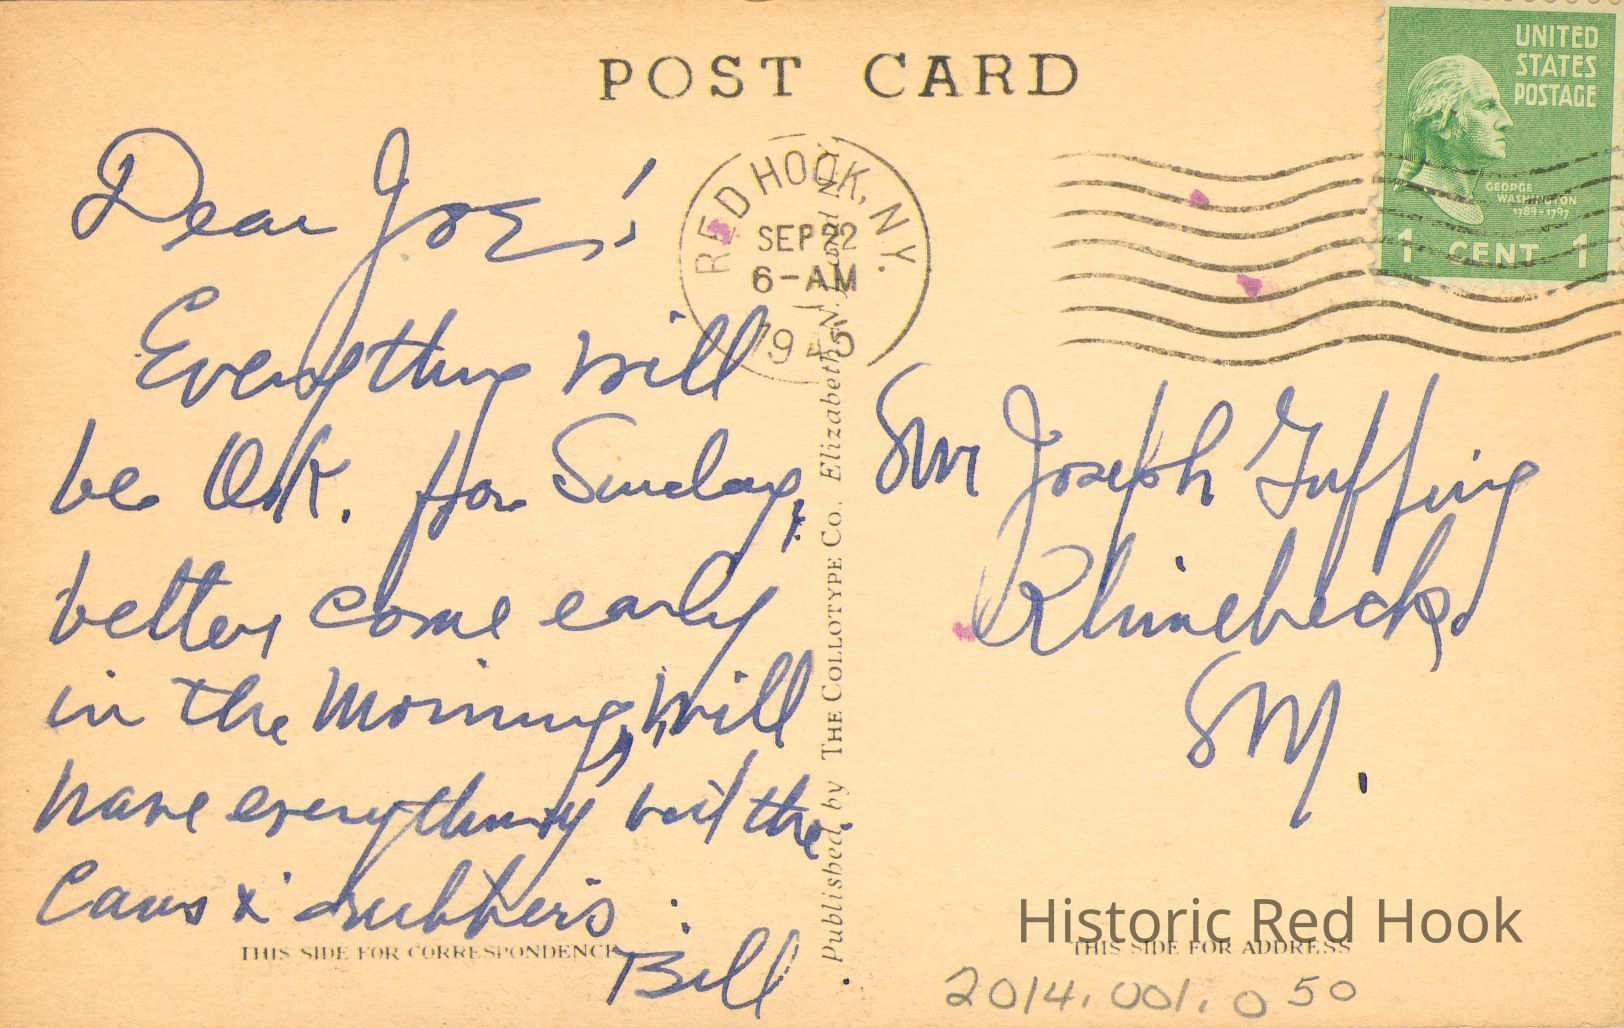 POST CARD
UNITED
STATES
POSTAGE
GEORGE
WASHINGTON
1789-1797
1 CENT 1
RED HOOK, N.Y.
SEP 22
6-AM
Dear Joe;
Everything will
be O.K. for Sunday,
better come early
in the Morning, will
have everything but the
&
Bill
Joseph
Rhinebeck
Published by THE COLLOTYPE Co., Elizabeth, N. J. and N.
THIS SIDE FOR CORRESPONDENCE
THIS SIDE FOR ADDRESS
Historic Red Hook
2014.001.050